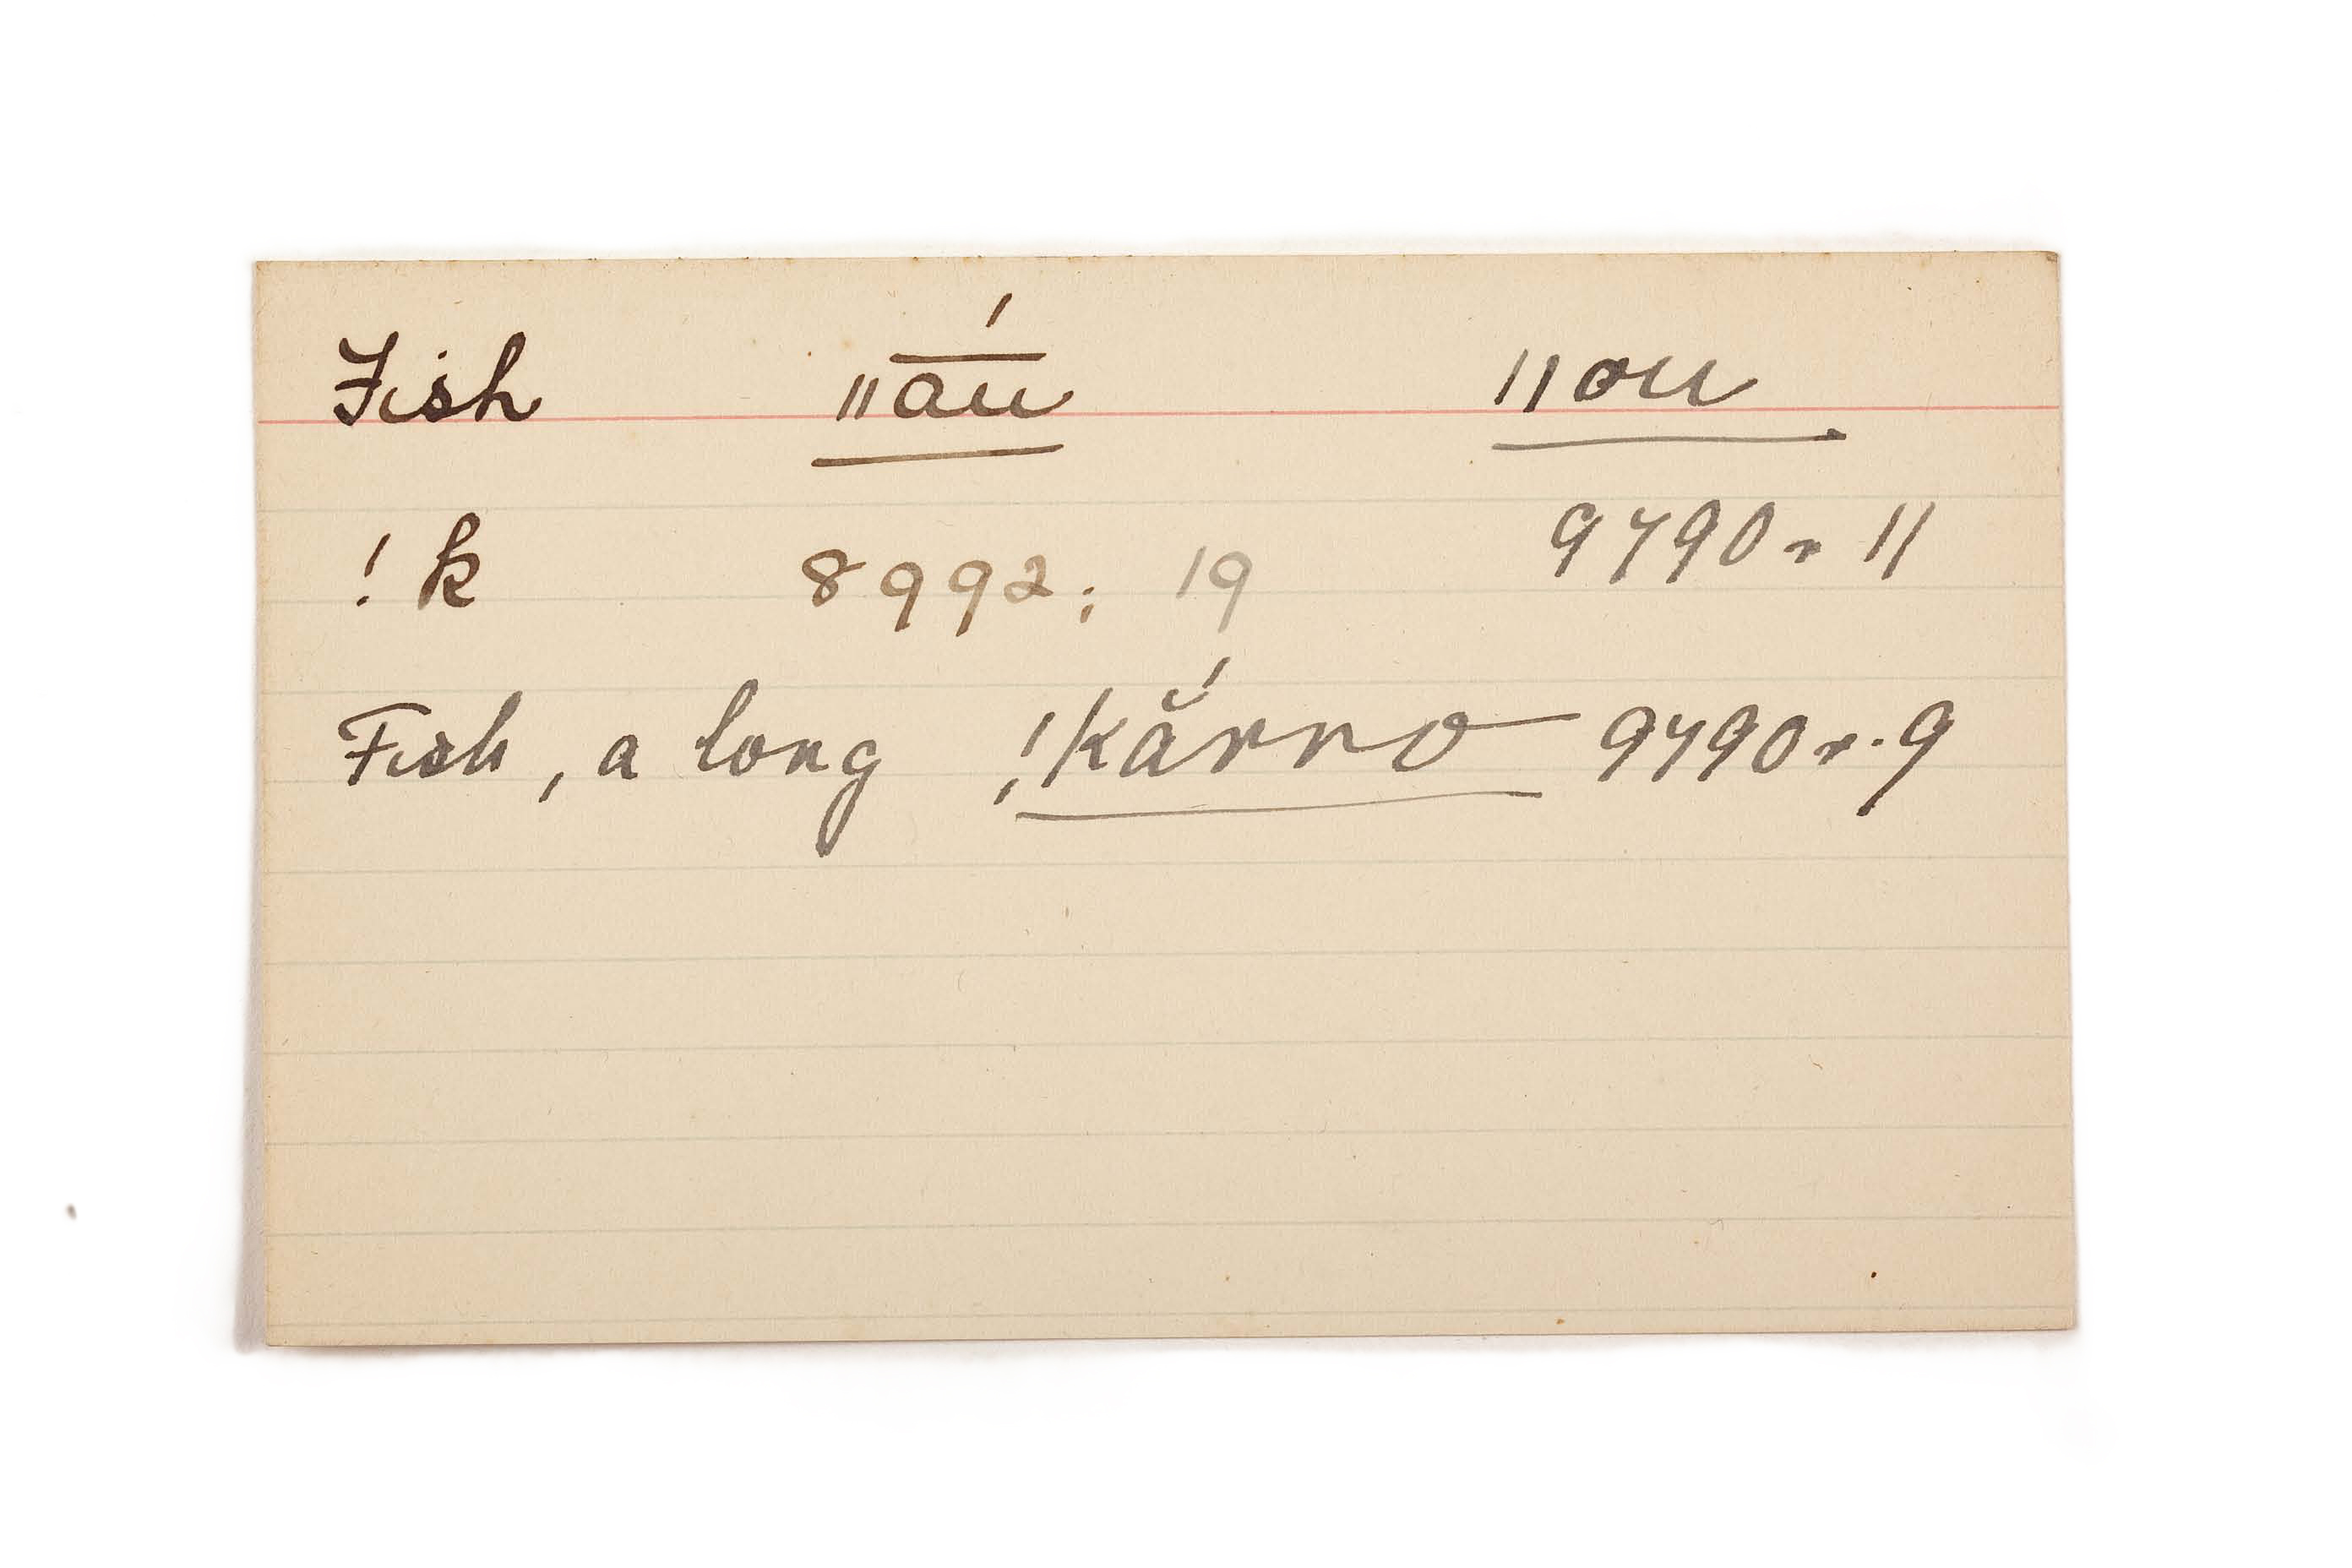 Fish ǁa̅u̅́ ǁou
!k 8992; 19 9790 r 11
Fish, a long !kắrro 9790 r. 9